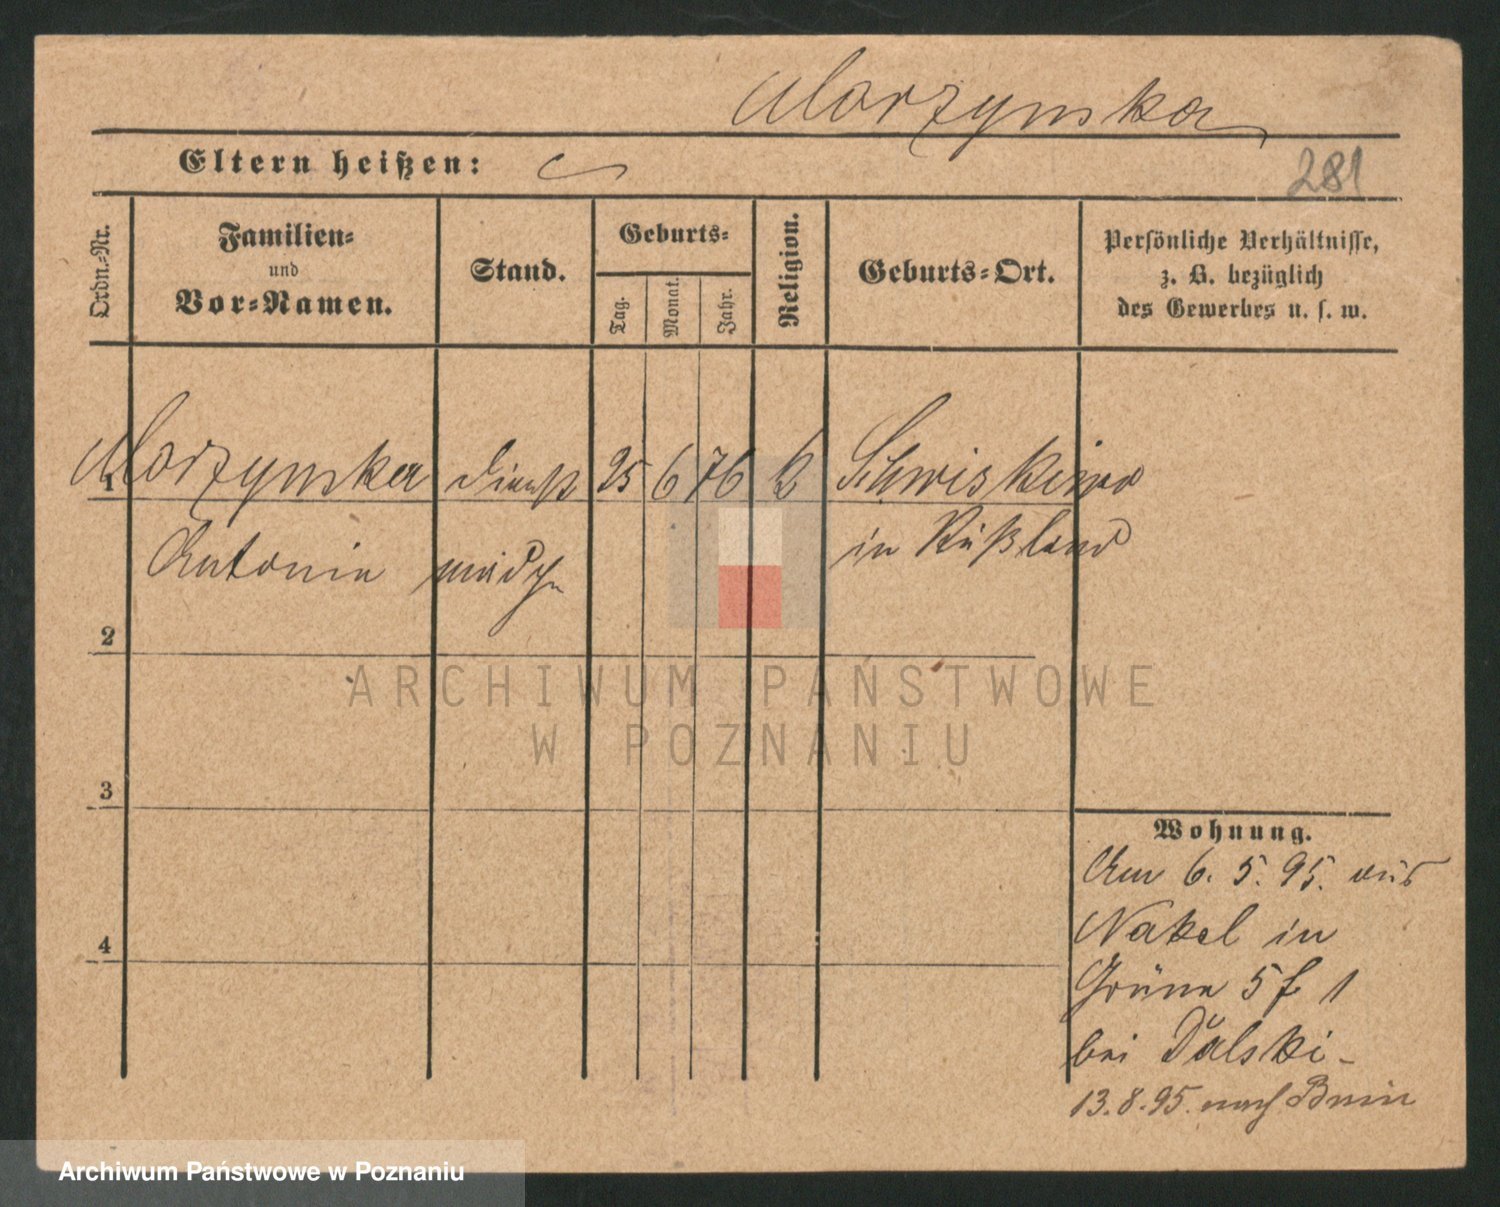 Morzynska
Eltern heißen:
281
Ordn.-Nr.
Familien-
und
Vor-Namen.
Stand.
Geburts-
Tag.
Monat.
Jahr.
Religion.
Geburts-Ort.
Persönliche Verhältnisse,
z. B. bezüglich
des Gewerbes u. s. w.
1 Morzynska Dienst 25 6 76 k
Antonie mädch in Rußland
2
3
4
Wohnung.
Am 6. 5. 95. aus
Nakel in
Grüne 5 f 1
bei Dulski -
13. 8. 95. nach Bnin
ARCHIWUM PAŃSTWOWE
W POZNANIU
Archiwum Państwowe w Poznaniu